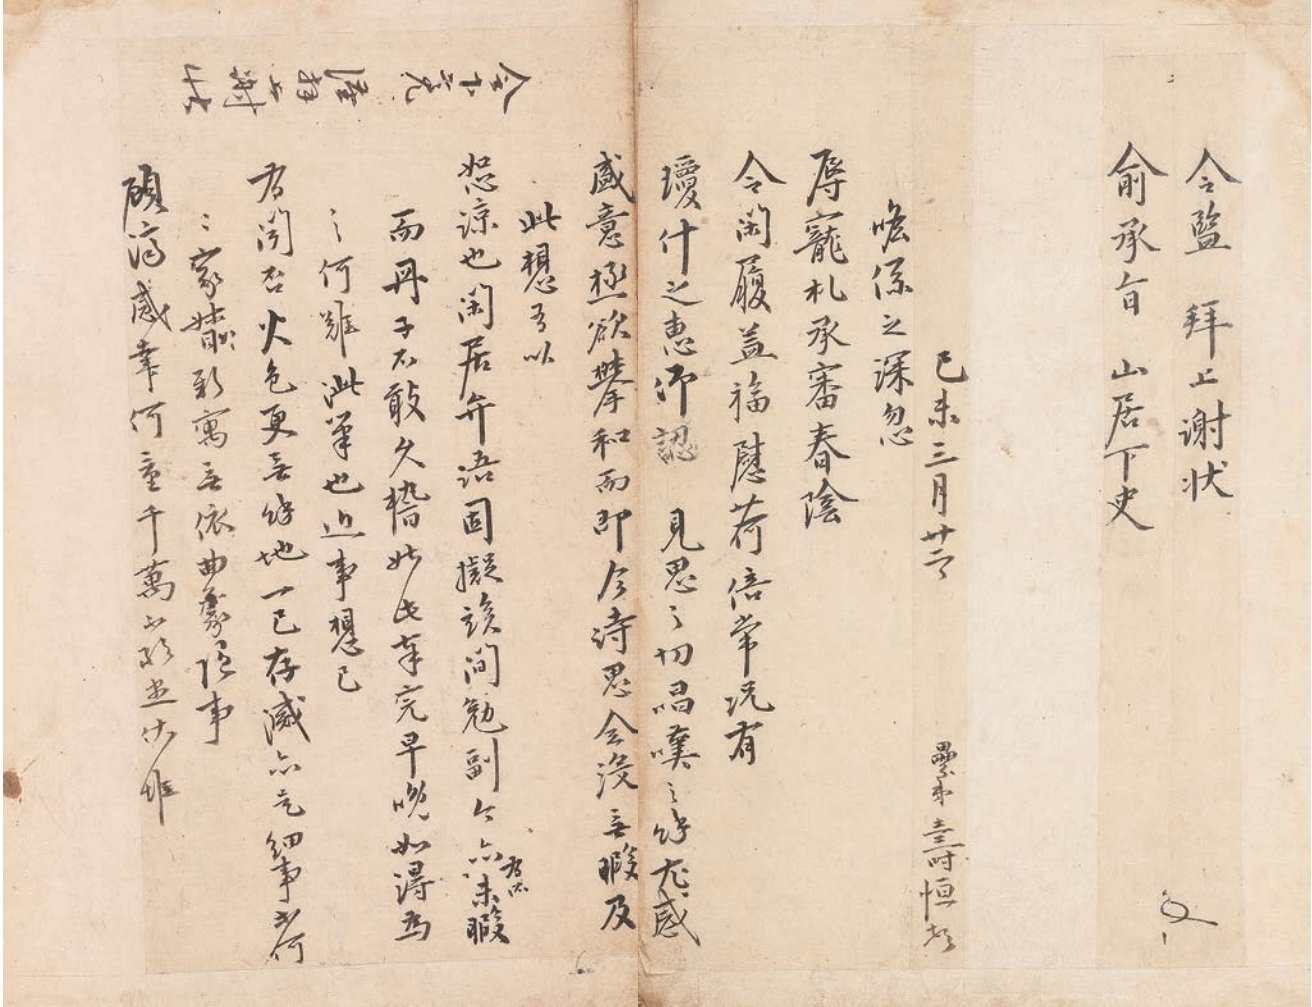 令監 拜上謝狀
俞承旨 山居下史
己未三月廿二
累弟壽恒頓
瞻係之深忽
辱寵札承審春陰
令閑履益福慰荷倍常況有
瓊什之惠仰認 見思之切唱嘆之餘尤感
盛意極欲攀和而即今詩思全沒無暇及
此想有以
恕諒也閑居弁語固擬 勉副今亦未暇
而 子不敢久稽 完早晚如得為
之何難泚筆也近事想已
有聞否火色更無餘地一己存滅亦是細事 何
之家 新寓無依曲 事
顧濟感幸何量千萬 伏惟
令下亮
上謝